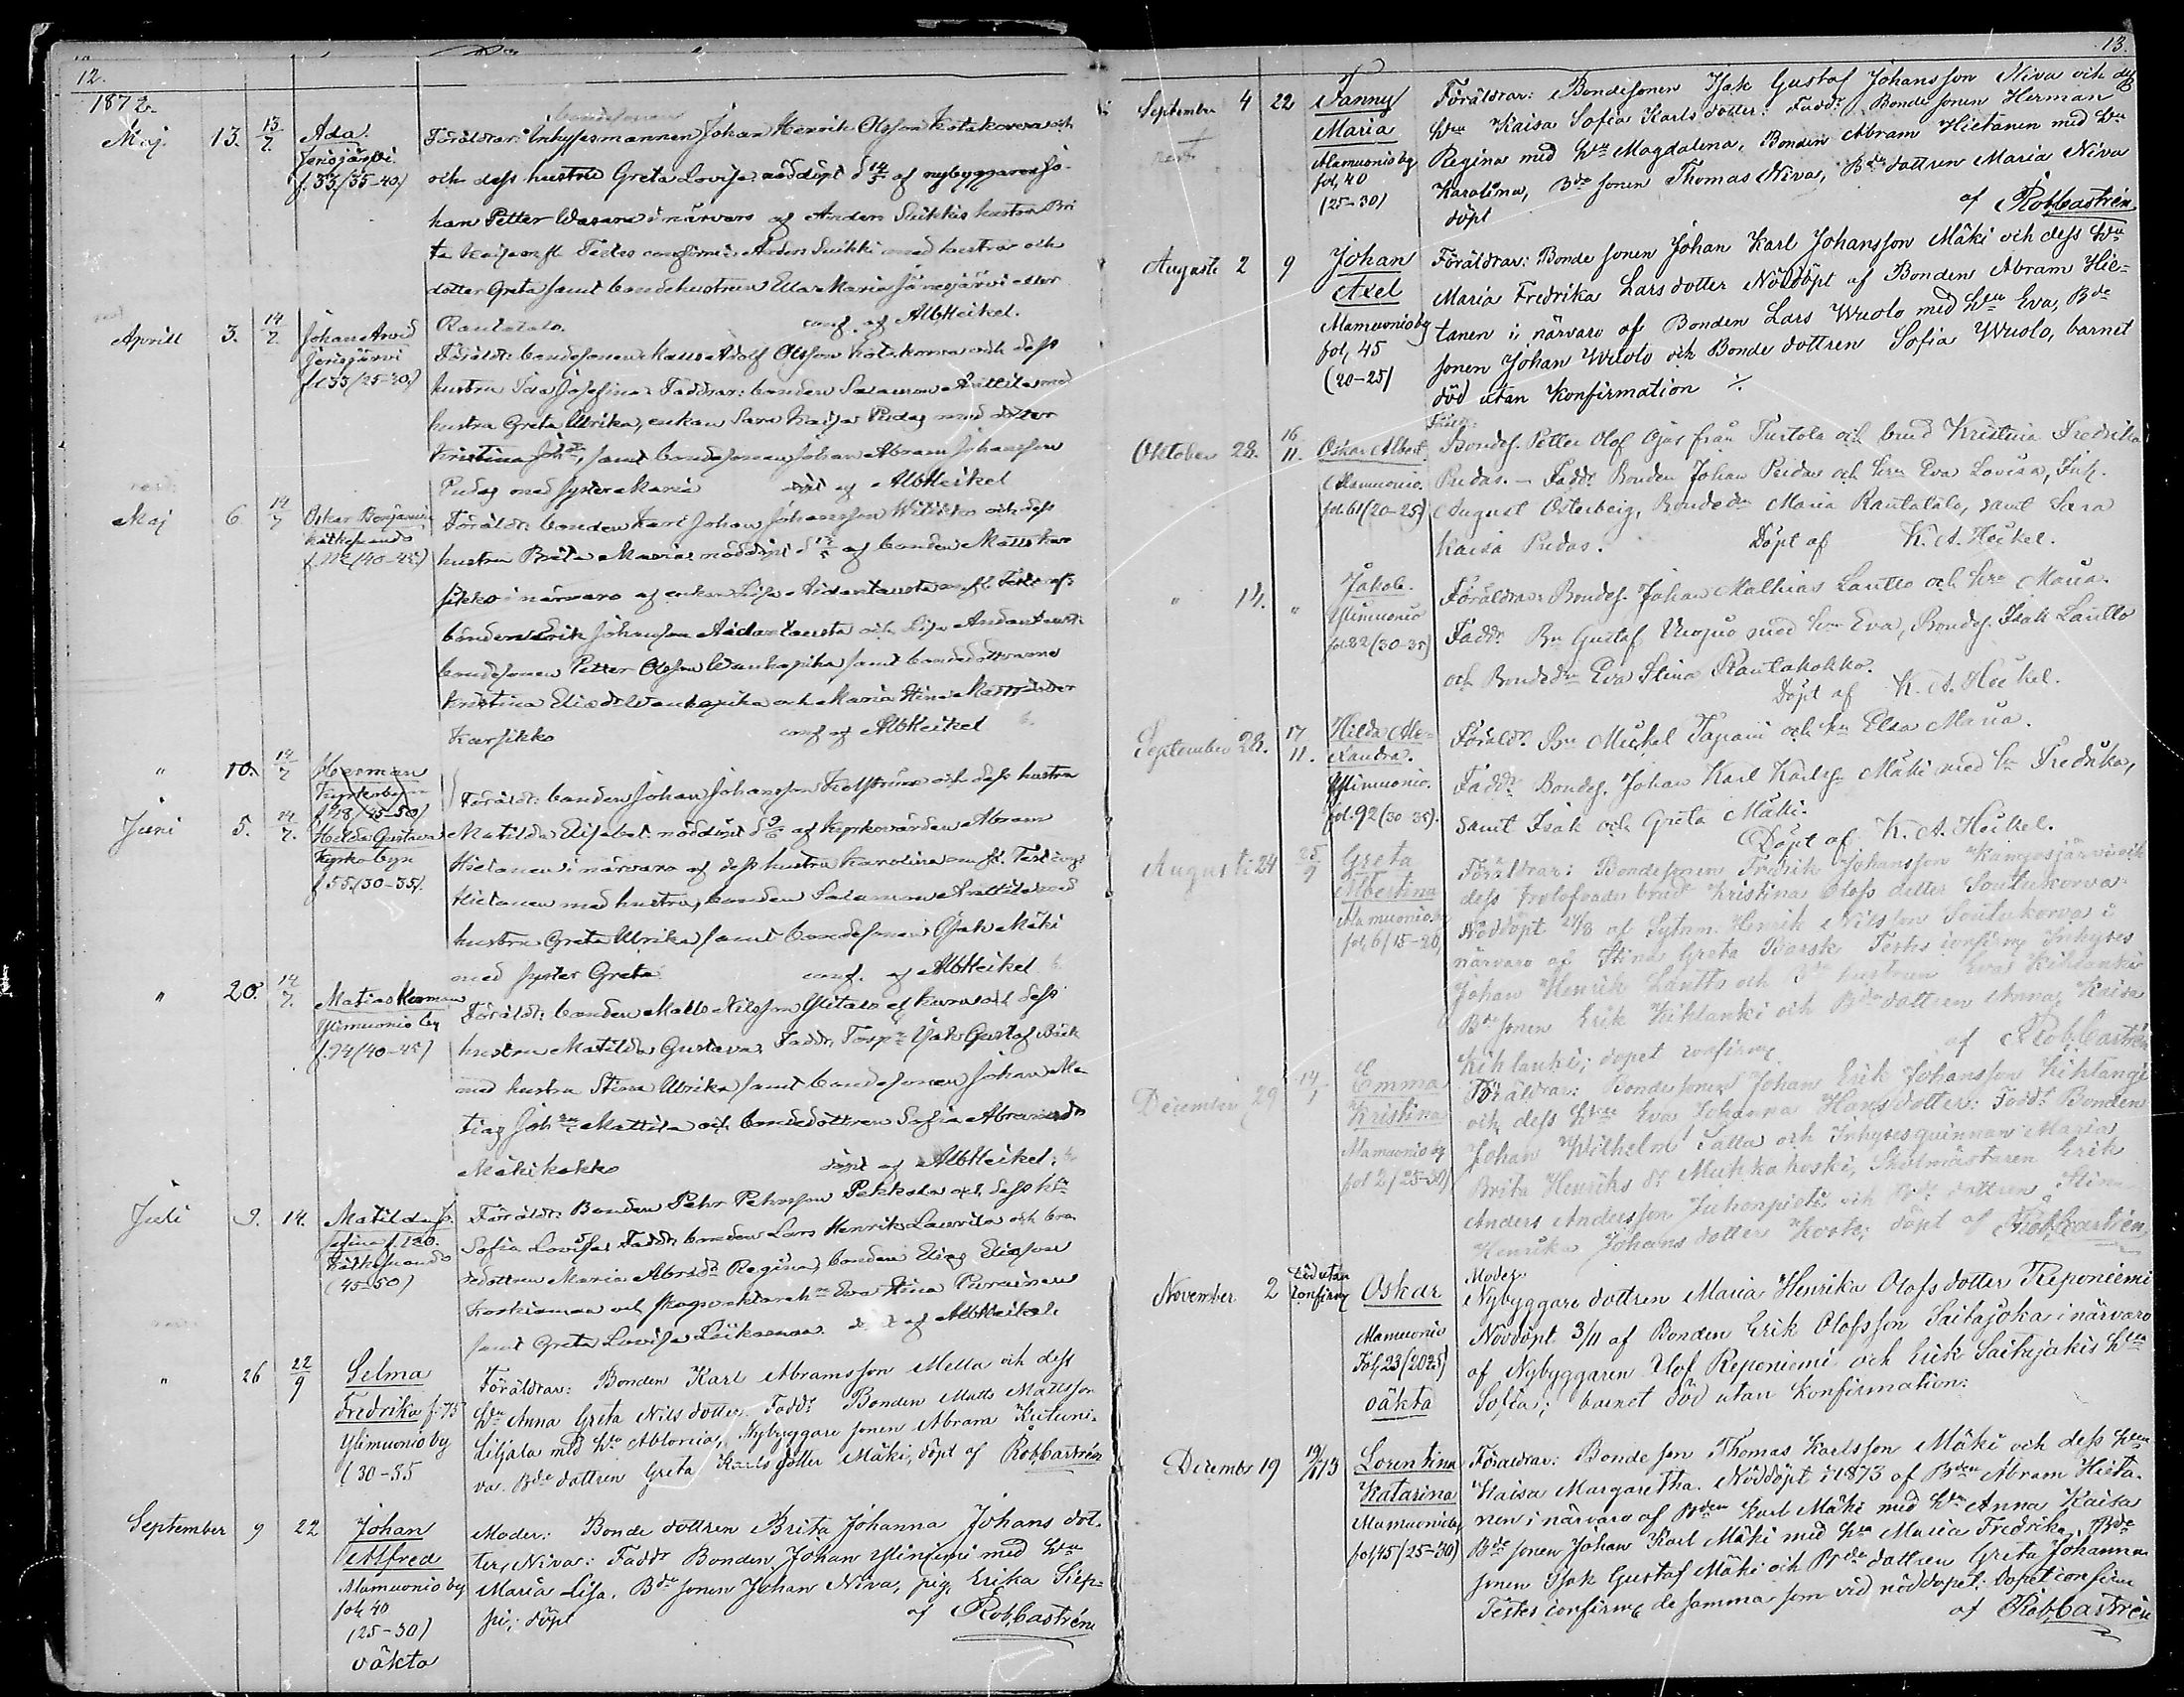 12.
1872.
Maj. 13. 13/7. Ada. Föräldrar: Inhysesmannen Johan Henrik Olsson Kätkovara och
bondesonen
Jerisjärvi
f. 33/(35-40) och dess hustru Greta Lovisa nöddöpt d 14/5 af nybyggaren Jo-
han Petter Wasara i närvaro af Anders Suikkis hustru Bri
ta Kaisa Testes confirm: Anders Suikki med hustru och
dotter Greta samt bondehustrun Ella Maria Jänesjärvi eller
Rautatalo. conf. af AlbHeikel.
Aprill 3. 14/7 Johan Arvid
Jerisjärvi
f. 33/(25-30) Föräldr: bondesonen Adolf Olsson och dess
hustru Ida Josefina Faddrar: bonden Salamon Anttila med
hustru Greta Ulrika, enkan Sara Kaisa Pudas med dotter
Kristina Johdr, samt bondesonen Johan Abram Johansson
Pudas med syster Maria döpt af AlbHeikel
Maj 6 14/7 Oskar Benjamin
Kätkesuando
(40-45) Föräldr: bonden Karl Johan Johansson och dess
hustru Brita Maria nöddöpt af bonden Matts Kar
sikko i närvaro af enkan Lisa Aidantausta Testes
bonden Erik Johansson Aidantausta och Lisa Aidantausta
bondesonen Petter Olsson Wanhapiha samt bondedöttrarne
Kristina Eliædr Wanhapiha och Maria Stina Mattsdotter
Karsikko conf af AlbHeikel
" 10. 14/7 Herman
Kyrkobyn
f. 18/(45-50) Föräldr: bonden Johan Johansson och dess hustru
Juni 5. 14/7. Hilda Gustava
Kyrkobyn
f 55/(30-35). Matilda Elisabet nöddöpt d 9/6 af kyrkovärden Abram
Hietanen i närvaro af dess hustru Karolina Test:
Hietanen med hustru, bonden Salamon Anttila med
hustru Greta Ulrika samt bondesonen Isak Mäki
med syster Greta conf. af AlbHeikel
" 20. 14/7. Matias Herman
Ylimuonio by
f. 74 (40-45) Föräldr: bonden Matts Nilsson Ylitalo och dess
hustru Matilda Gustava Faddr: Isak Gustaf Bäck
med hustru Stina Ulrika samt bondesonen Johan Ma
tias Johan Mattila och bondedottren Sofia Abramsdr
Mäkikokko döpt af AlbHeikel.
Juli 9. 14. Matilda Jo
sefina f. 120.
Kätkesuando
(45-50) Föräldr: Bonden Pehr Pehrsson Pekkala och dess hu
Sofia Lovisa, Faddr: bonden Lars Henrik Laurila och bon
dedottren Maria Abrdr Regina, bonden Elias Eliasson
Koskiamaa och Eva Stina Purainen
samt Greta Lovisa döpt af AlbHeikel
" 26 22/9 Selma
Fredrika f. 75
Ylimuonio by
(30-35 Föräldrar: Bonden Karl Abramsson Mella och dess
hu Anna Greta Nils dotter. Faddr Bonden Matts Mattsson
Liljala med hu Ablonia, Nybyggare sonen Abram Kutuni-
va. Bde dottren Greta Karls dotter Mäki, döpt af RobCastrén
September 9 22 Johan
Alfred
Alamuonio by
fol, 40
(25-30)
oäkta Moder: Bonde dottren Brita Johanna Johans dot-
ter, Niva: Faddr Bonden Johan Yliniemi med hu
Maria Lisa. Bde sonen Johan Niva, pig, Erika Siep-
pi, döpt af RobCastrén
13.
September 4 22 Fanny
Maria
Alamuonio by
fol, 40
(25-30) Föräldrar: Bondesonen Isak Gustaf Johansson Niva och dess
hu Kaisa Sofia Karls dotter: Faddr: Bonde sonen Herman
Regina med hu Magdalena, Bonden Abram Hietanen med hu
Karolina, Bde sonen Thomas Niva, Bde dottren Maria Niva
döpt af RobCastrén
Augusti 2 9 Johan
Axel
Alamuonio by
fol, 45
(20-25) Föräldrar: Bonde sonen Johan Karl Johansson Mäki och dess hu
Maria Fredrika Lars dotter Nöddöpt af Bonden Abram Hie-
tanen i närvaro af Bonden Lars Wuolo med hu Eva, Bde
sonen Johan Wuolo och Bonde dottren Sofia Wuolo, barnet
död utan konfirmation
Oktober 28. 16/11. Oskar Albert
Alamuonio.
fol. 61 (20-25) Bondes. Petter Olof Ojas från Turtola och brud Kristina Fredrika
Pudas. – Faddr Bonden Johan Pudas och hu Eva Lovisa, Inh.
August Österberg, Bondedr Maria Rautatalo, samt Sara
Kaisa Pudas. Döpt af K. A. Heikel.
" 14. " Jakob.
Ylimuonio
fol. 82 (30-35) Föräldrar: Bondes. Johan Mathias Lautto och hu Maria.
Faddr Bn Gustaf med hu Eva, Bondes. Isak Lautto
och Bondedn Eva Stina Rautakokko.
Döpt af K. A. Heikel.
September 28. 17/11. Hilda Ale-
xandra.
Ylimuonio.
fol. 92 (30-35). Föräldr Bn Mickel Tapani och hu Elsa Maria.
Faddr Bondes. Johan Karl Karlsn Mäki med hu Fredrika,
samt Isak och Greta Mäki.
Döpt af K. A. Heikel.
Augusti 24 25/9 Greta
Albertina
Alamuonio by
fol, 6/15-20, Föräldrar: Bondesonen Fredrik Johansson Kangosjärvi och
dess trolofvade brud Kristina Olofs dotter Soutukorva
Nöddöpt 24/8 af Sytnm. Henrik Nilsson Soutukorva i
närvaro af Stina Greta Barsk Testes confirm Inhyses
Johan Henrik Lautto och Bde hustrun Eva Kihlanki
Bde sonen Erik Kihlanki och Bde dottren Anna Kaisa
Kihlanki; dopet confirm af RobCastrén
December 29 14/1 Emma
Kristina
Alamuonio by
fol 2/25-30) Föräldrar: Bonde sonen Johan Erik Johansson Kihlangi
och dess hu Eva Johanna Hans dotter: Faddr Bonden
Johan Wilhelm Salla och Inhysesquinnan Maria
Brita Henriks dr Muhkakoski, Skolmästaren Erik
Anders Andersson Juhonpieti och Bde dottren Stina
Henrika Johans dotter Koski; döpt af RobCastrén
November 2 Död utan
Confirm Oskar
Alamuonio
Fol, 23/(20-25)
oäkta Moder
Nybyggare dottren Maria Henrika Olofs dotter Reponiemi
Nöddöpt 3/11 af Bonden Erik Olofsson Saitajoka i närvaro
af Nybyggaren Olof Reponiemi och Erik Saitajokis hu
Sofia; barnet död utan konfirmation:
December 19 Lorentina
Katarina
Alamuonio by
fol, 45/(25-30) Föräldrar: Bonde son Thomas Karlsson Mäki och dess hu
Kaisa Margaretha. Nöddöpt i 1873 af Bden Abram Hieta-
nen i närvaro af Bden Karl Mäki med hu Anna Kaisa
Bde sonen Johan Karl Mäki med hu Maria Fredrika, Bde
sonen Isak Gustaf Mäki och Bde dottren Greta Johanna
Testes confirm, de samma som vid nöddopet; dopet confirm
af RobCastrén